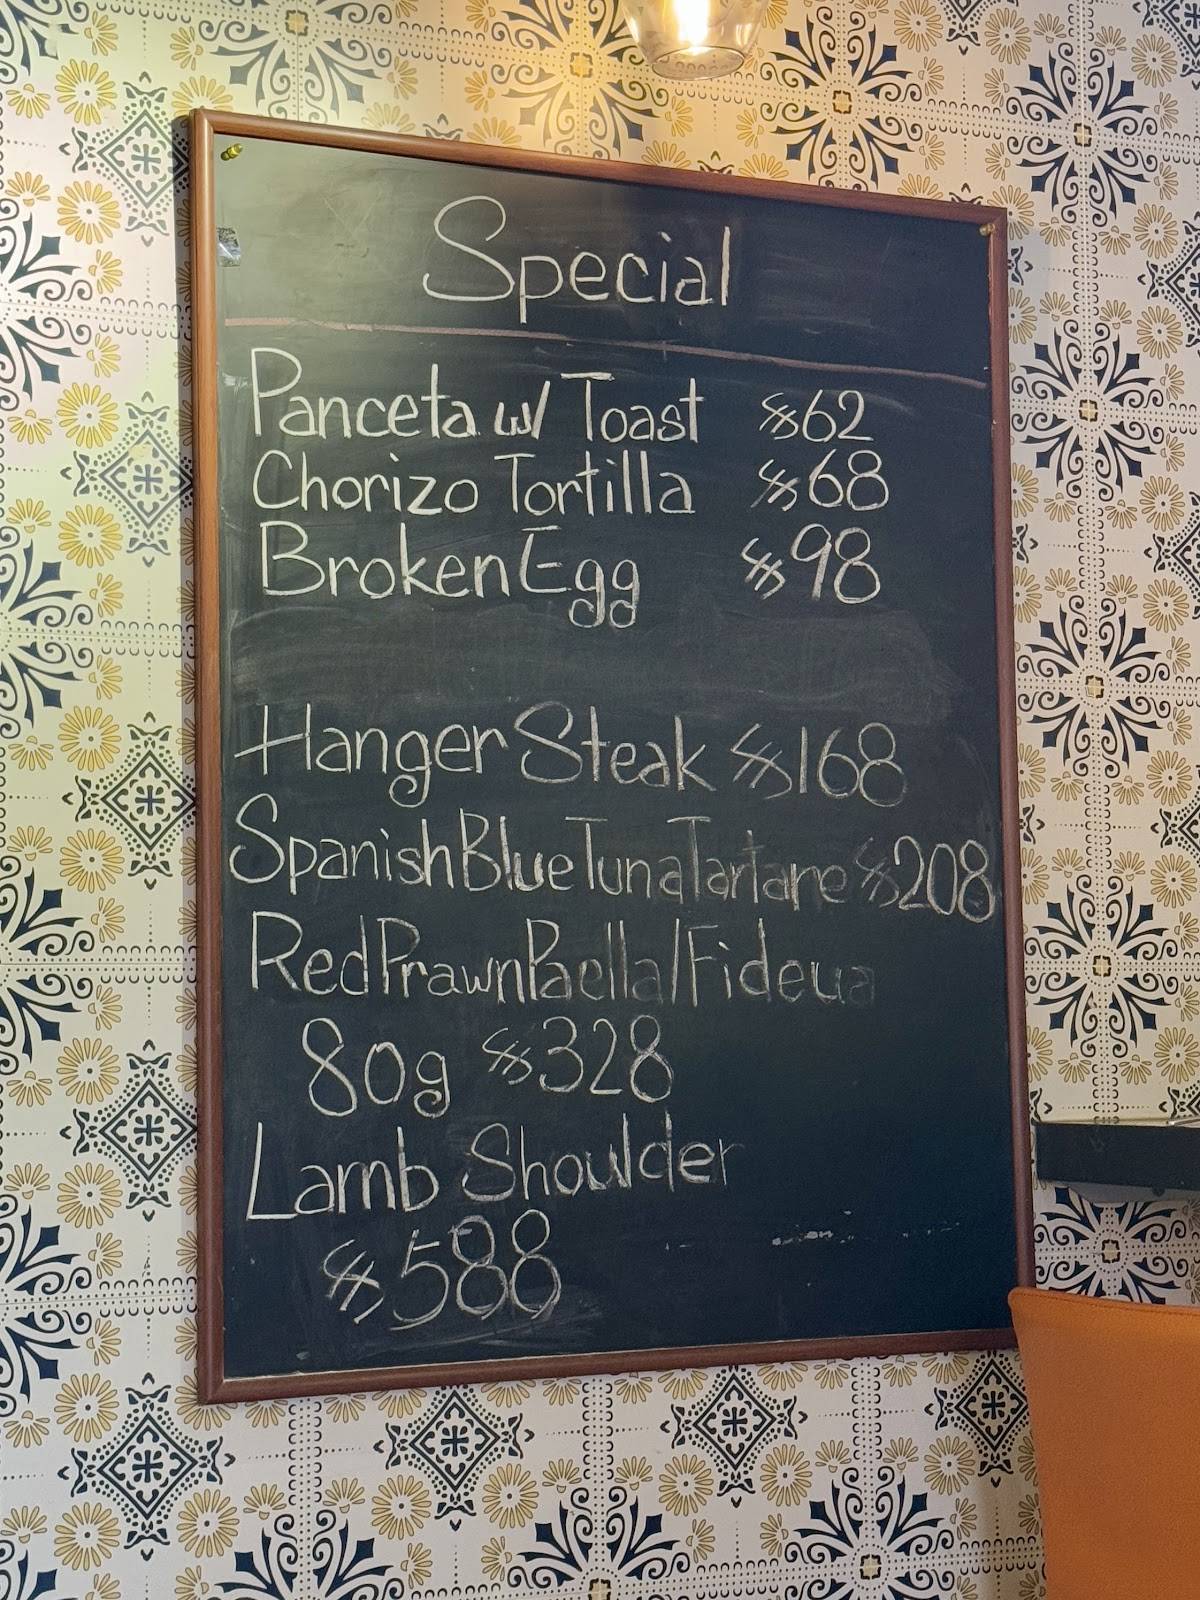 Special
Panceta w/ Toast $62
Chorizo Tortilla $68
Broken Egg $98
Hanger Steak $168
Spanish Blue Tuna Tartare $208
Red Prawn Paella/Fideua
80g $328
Lamb Shoulder
$588